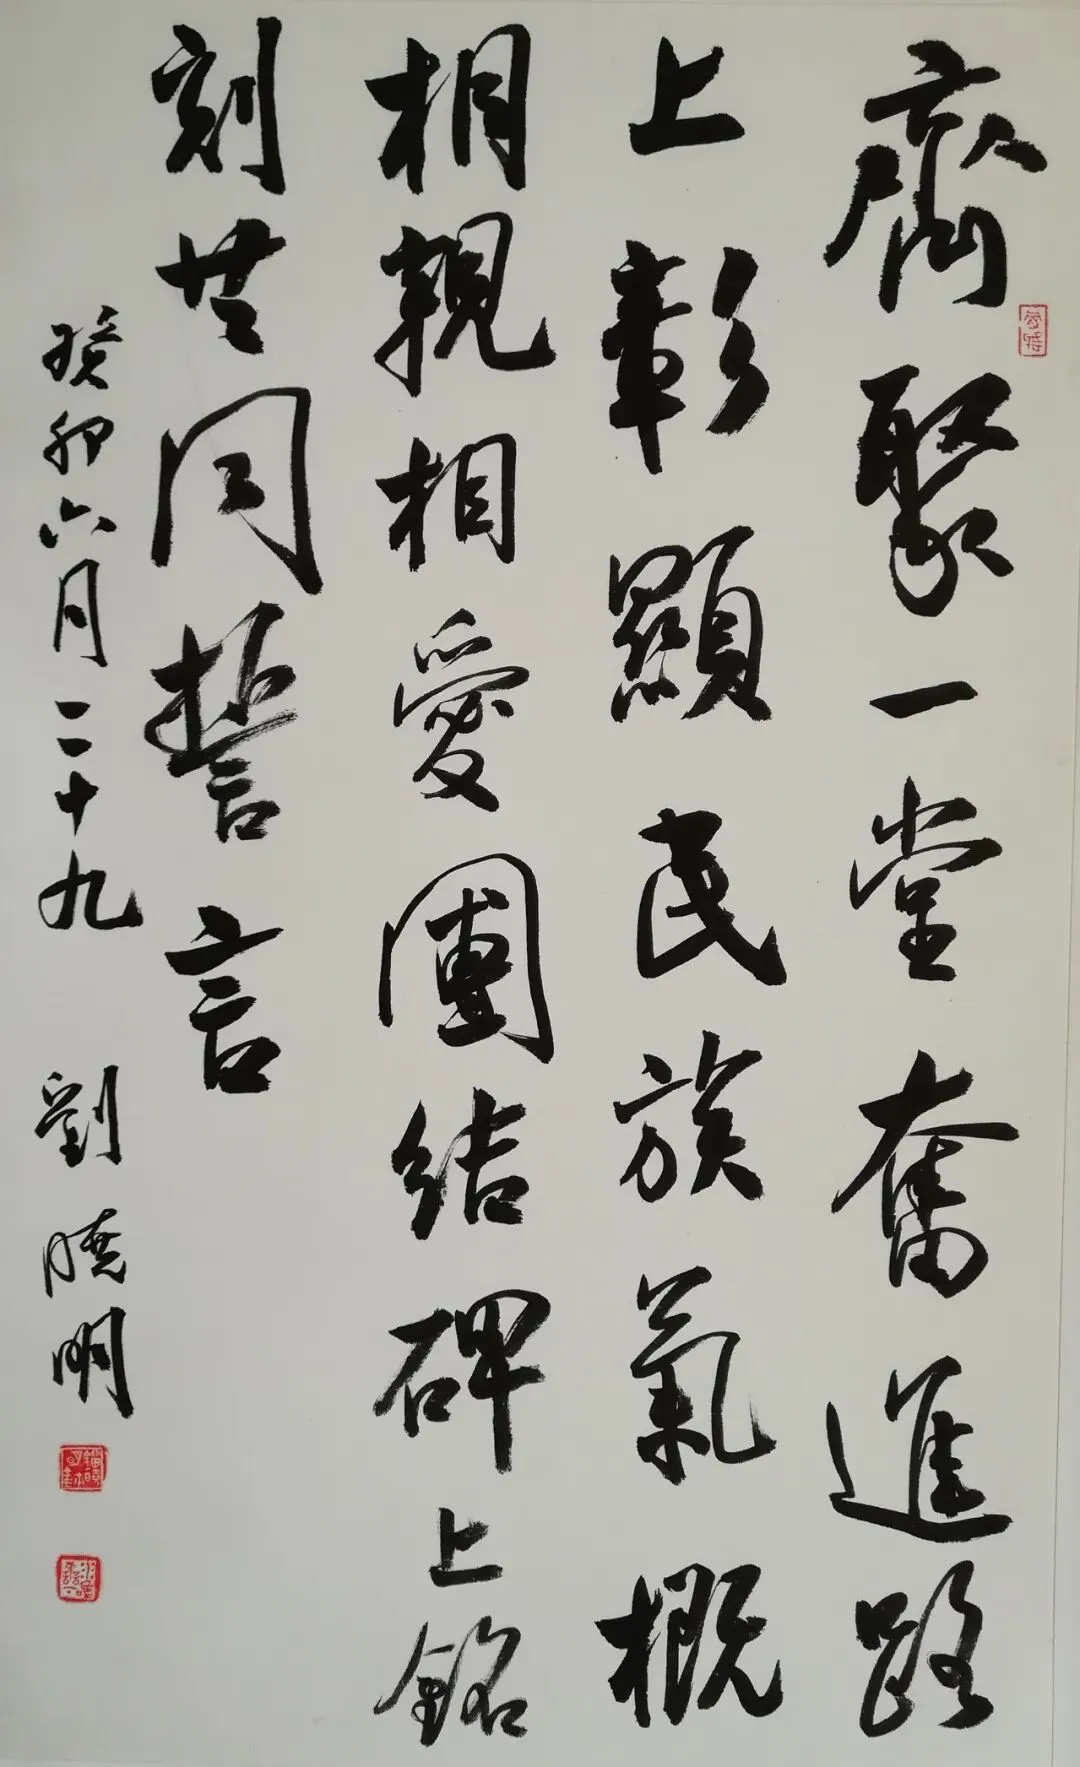 齊聚一堂奮進路
上彰顯民族氣概
相親相愛團結碑上銘
刻共同誓言
癸卯六月二十九 劉曉明